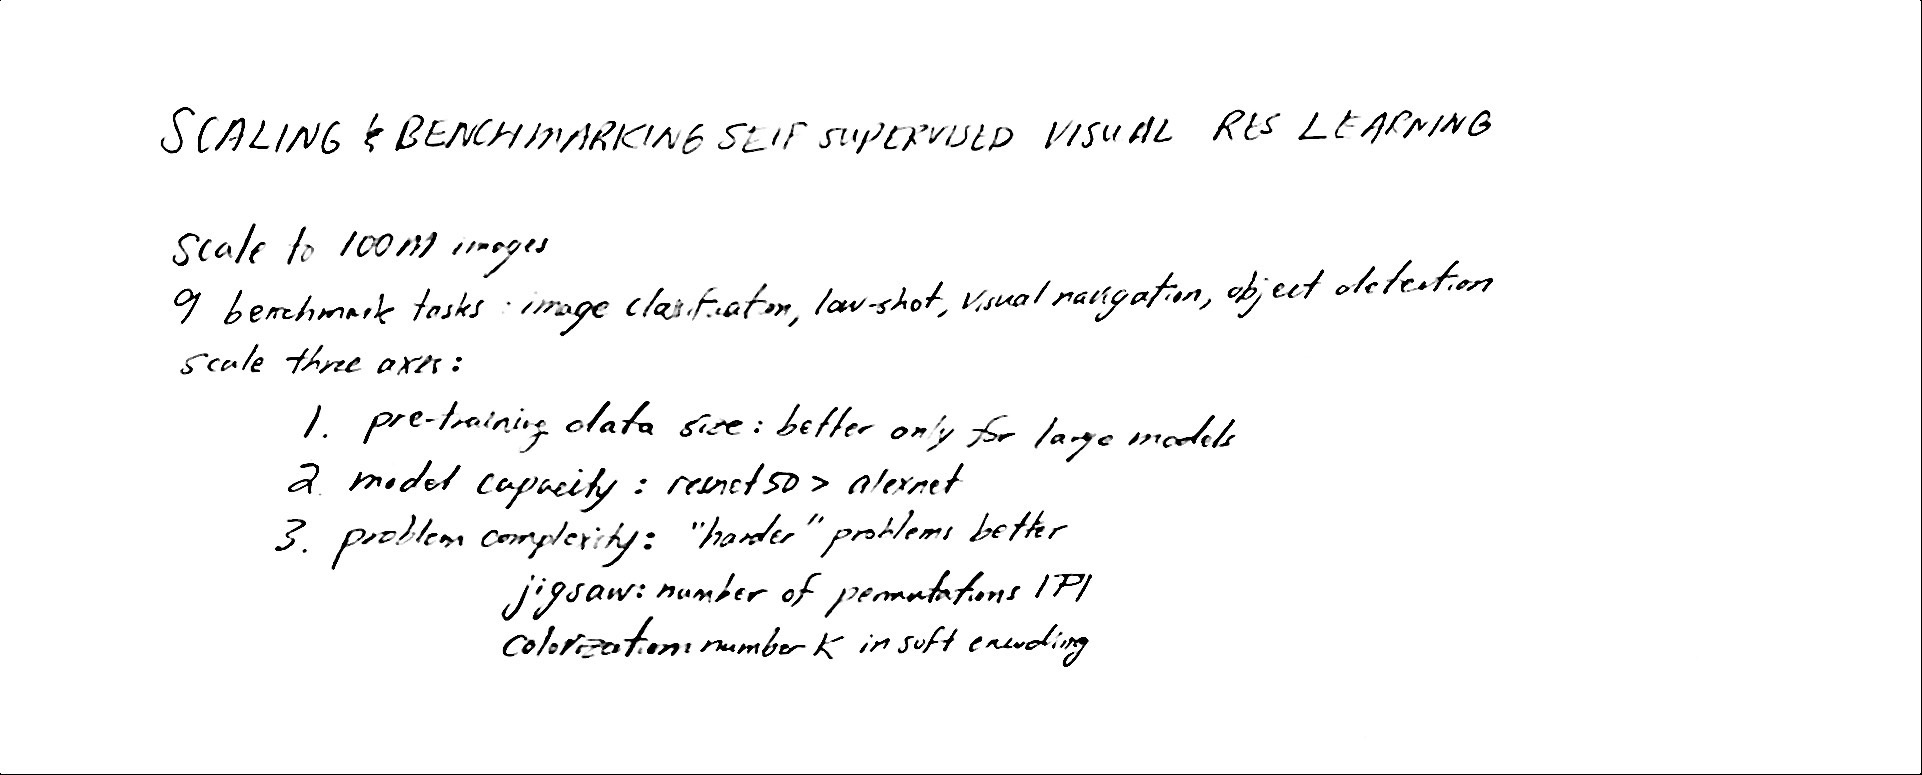 SCALING & BENCHMARKING SELF SUPERVISED VISUAL RES LEARNING
scale to 100M images
9 benchmark tasks: image classification, low-shot, visual navigation, object detection
scale three axes:
1. pre-training data size: better only for large models
2. model capacity: resnet50 > alexnet
3. problem complexity: "harder" problems better
jigsaw: number of permutations |P|
colorization: number K in soft encoding